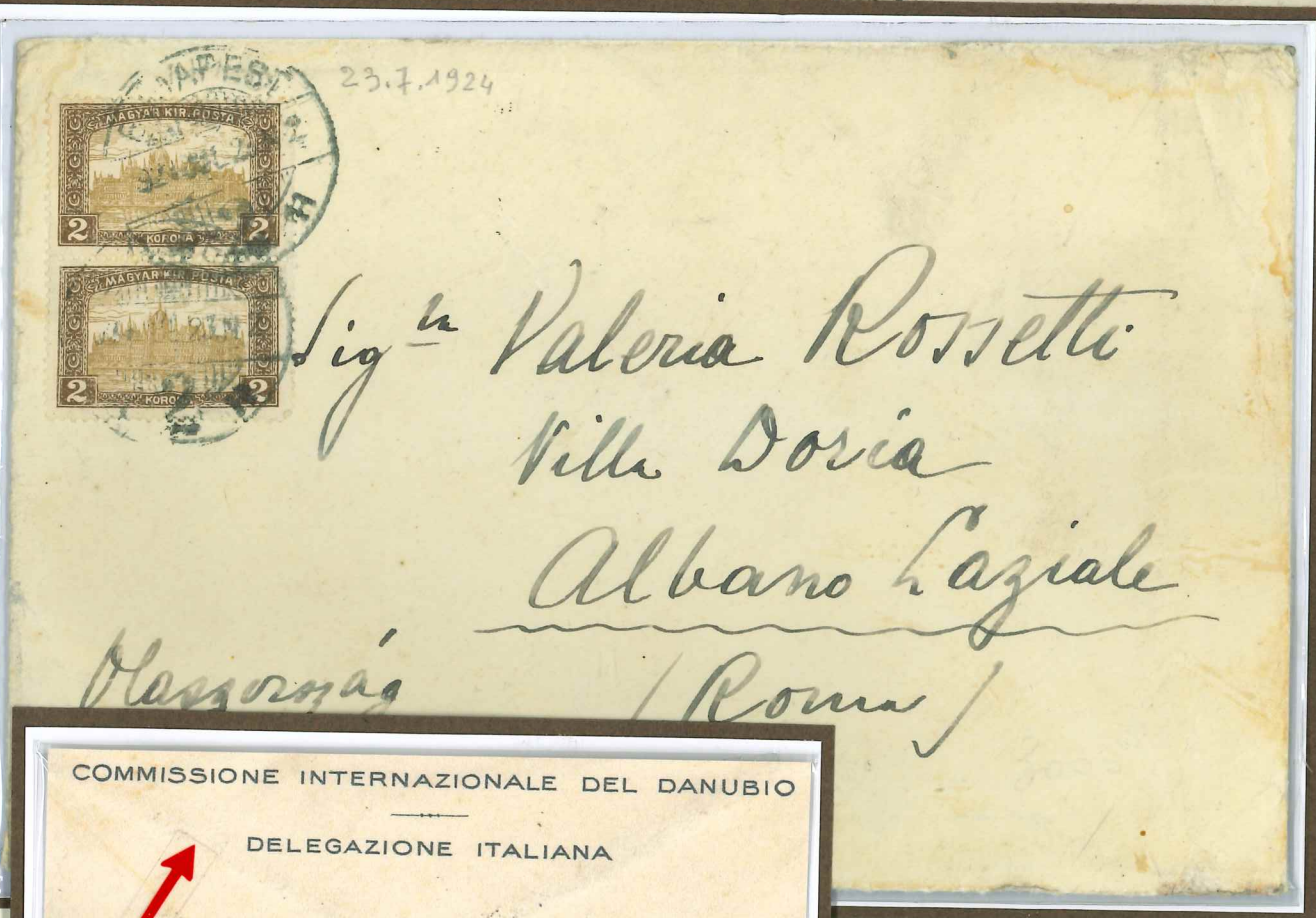 23.7.1924
MAGYAR KIR. POSTA
2 2
KORONA
MAGYAR KIR. POSTA
2 2
KORONA
Sigra Valeria Rossetti
Villa Doria
Albano Laziale
(Roma)
Olaszország
COMMISSIONE INTERNAZIONALE DEL DANUBIO
DELEGAZIONE ITALIANA